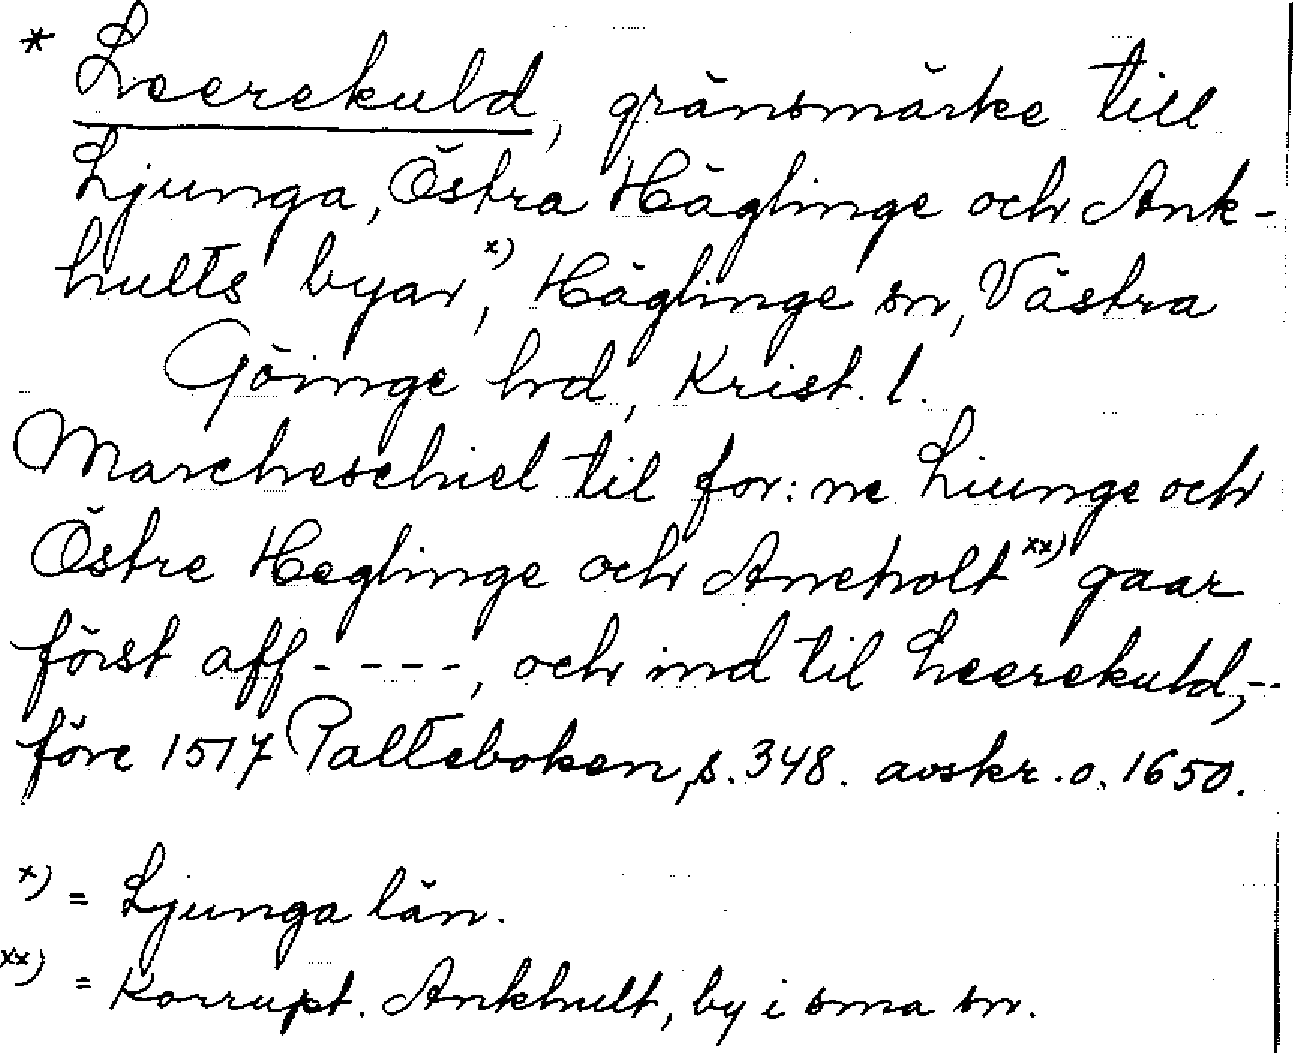 * Leerekuld, gränsmärke till
Ljunga, Östra Häglinge och Ank-
hults byar,x) Häglinge sn, Västra
Göinge hd, Krist. l.
Marcheschiel til for:ne Liunge och
Östre Heglinge och Aneholtxx) gaar
först aff - - - -, och ind til Leerekuld,--
före 1517 Palteboken, s. 348. avskr. o. 1650.
x) = Ljunga län.
xx) = Korrupt. Ankhult, by i sma sn.